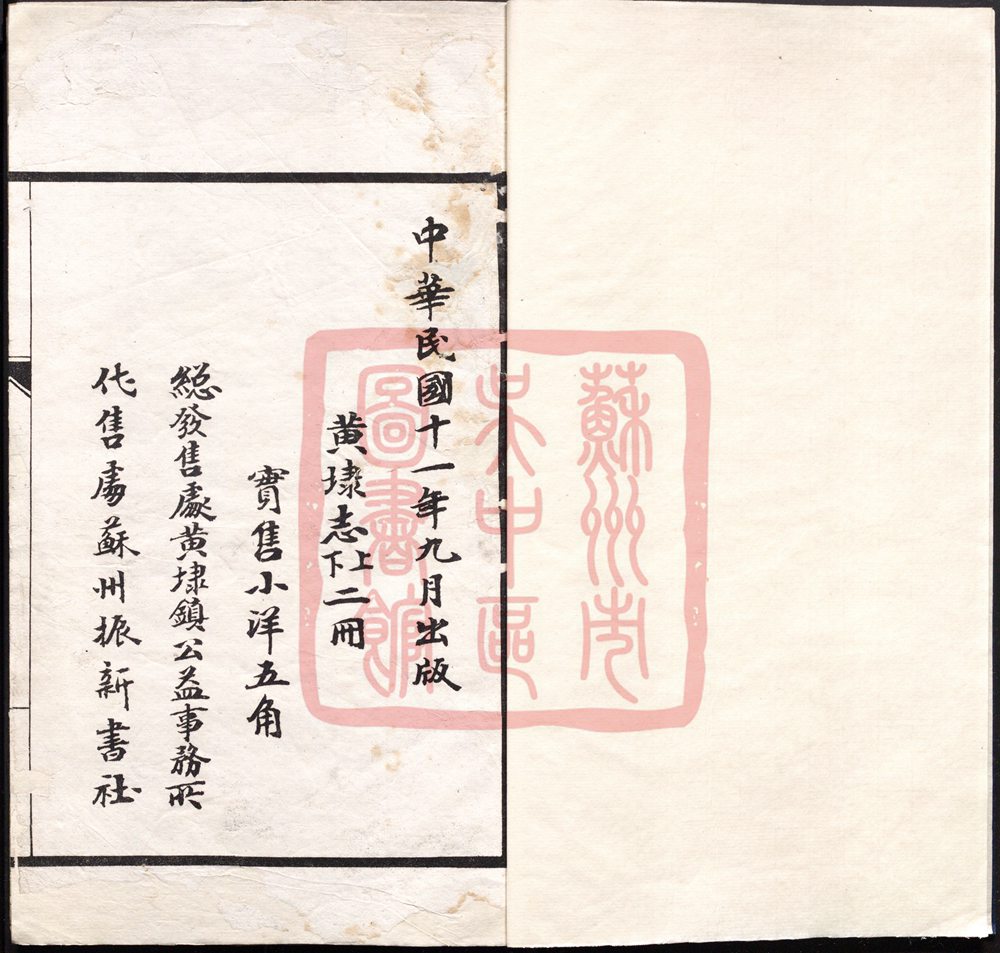 中華民國十一年九月出版
黄埭志上下二冊
實售小洋五角
総發售處黄埭鎮公益事務所
代售處蘇州振新書社
蘇州市
吴中區
圖書館